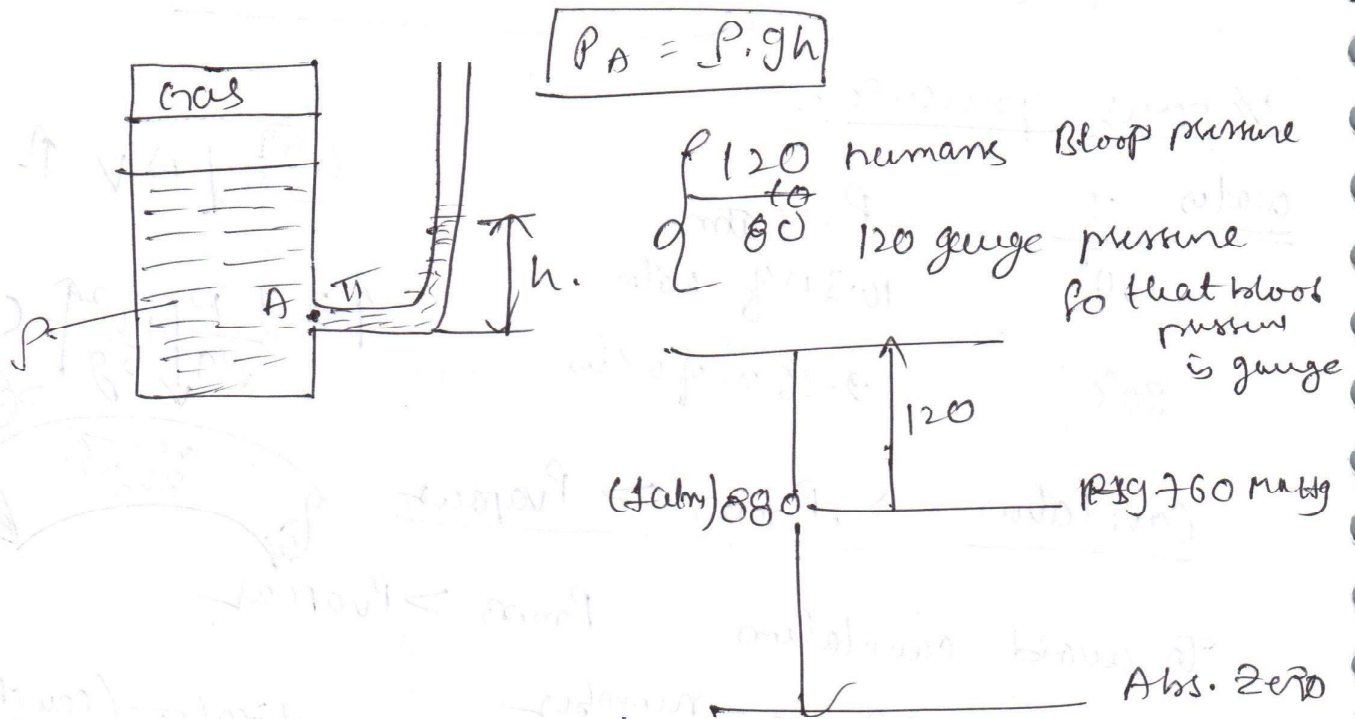 PA = ρ.gh
Gas
120 humans Bloop pressure
80 120 gauge pressure
so that bloos
pressure
is gauge
A
h.
ρ
120
(1atm) 880
760 mmHg
Abs. Zero